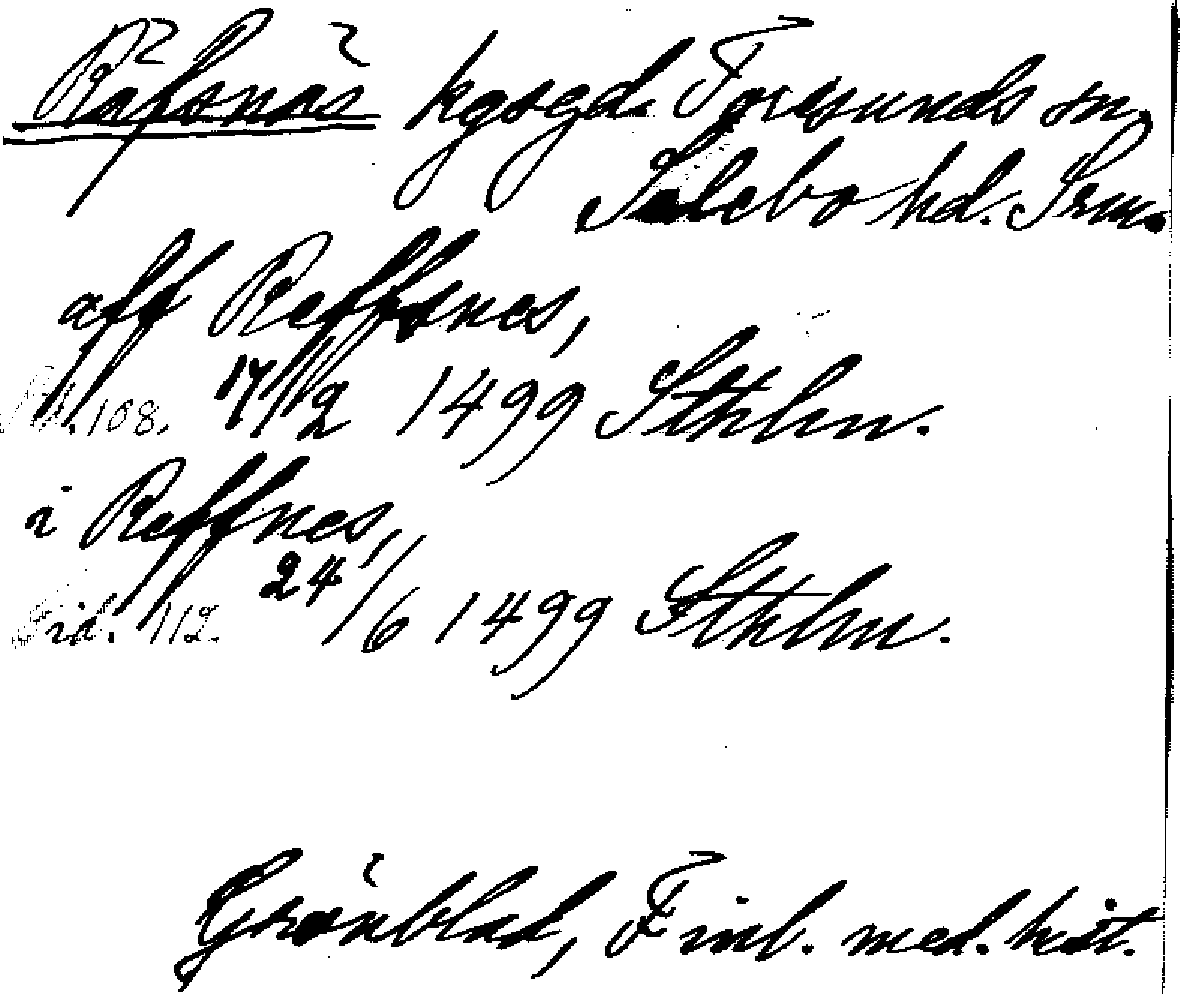 Räfsnäs kgsgd. Toresunds sn,
Selebo hd. Srm.
aff Reffsnes,
108. 17/12 1499 Sthlm.
i Reffnes,
Sid. 112. 24/6 1499 Sthlm.
Grönblad, Finl. med. hist.